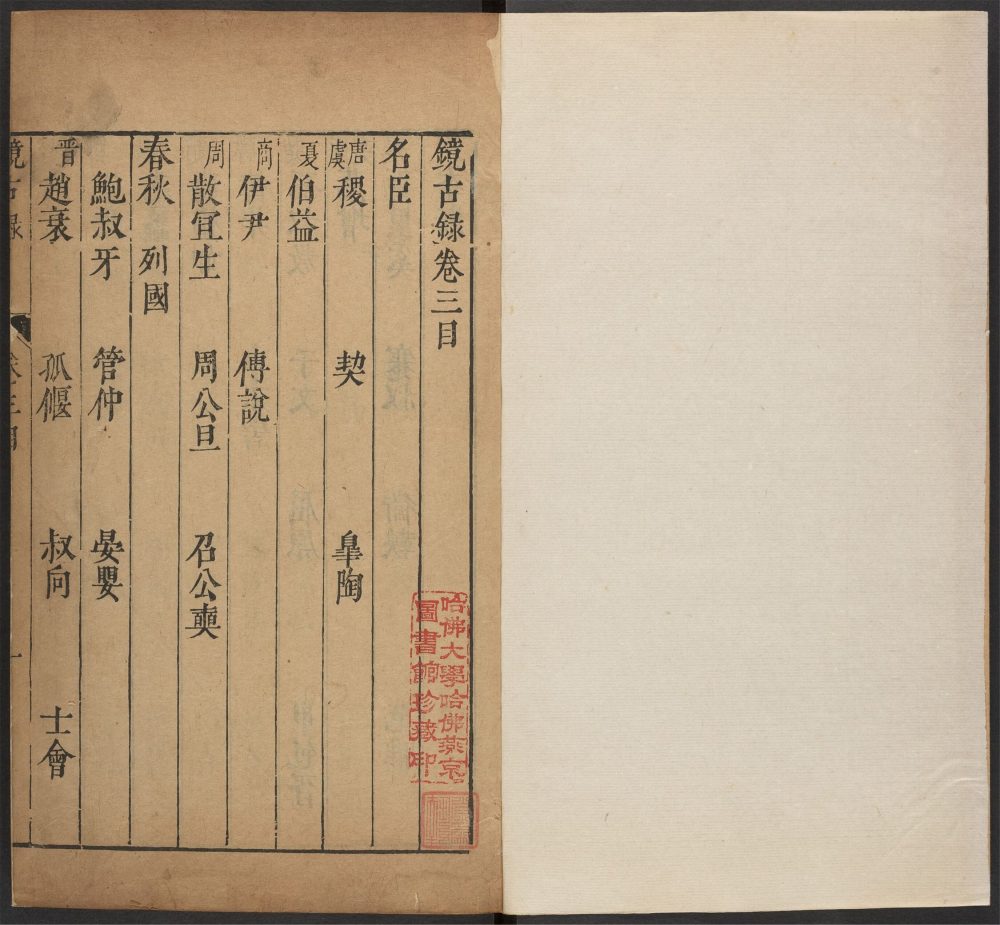 鏡古録卷三目
名臣
唐虞 稷 契 臯陶
夏 伯益
商 伊尹 傅說
周 散宜生 周公旦 召公奭
春秋 列國
鮑叔牙 管仲 晏嬰
晋 趙衰 孤偃 叔向 士會
鏡古録 卷之三目 一
哈佛大學哈佛燕京
圖書館珍藏印